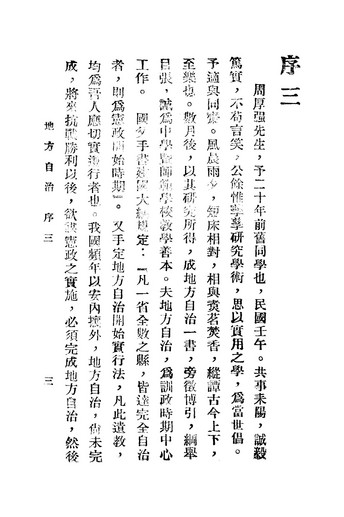 序三
周厚强先生，予二十年前舊同學也，民國壬午。共事耒陽，誠毅
篤實，不苟言笑，公餘惟孳孳研究學術，思以實用之學，爲當世倡。
予適與同寮。風晨雨夕，短床相對，相與煑茗焚香，縱譚古今上下，
至樂也。數月後，以其研究所得，成地方自治一書，旁徵博引，綱舉
目張，誠爲中學暨師範學校教學善本。夫地方自治，爲訓政時期中心
工作。 國父手書建國大綱規定：「凡一省全數之縣，皆達完全自治
者，則爲憲政開始時期」。又手定地方自治開始實行法，凡此遺教，
均爲吾人應切實遵行者也。我國頻年以安內攘外，地方自治，尙未完
成，將來抗戰勝利以後，欲謀憲政之實施，必須完成地方自治，然後
地方自治 序三
三